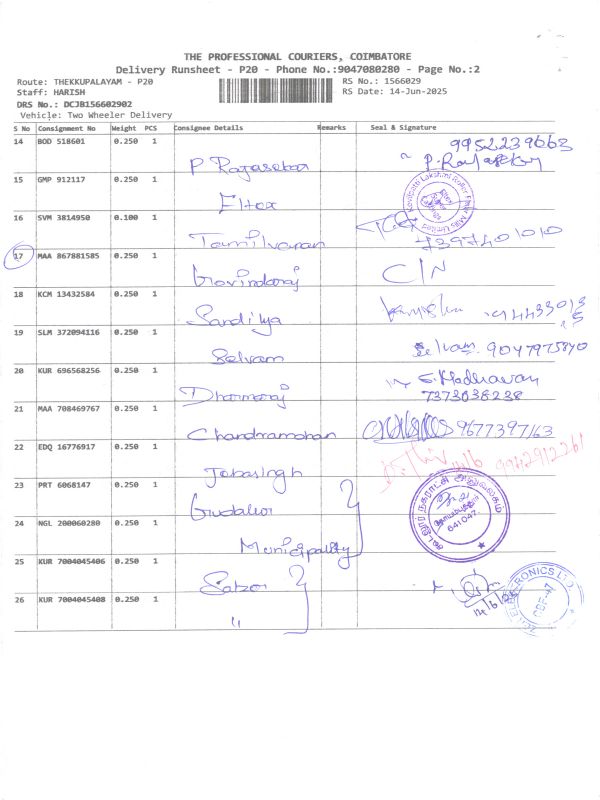 THE PROFESSIONAL COURIERS, COIMBATORE
Delivery Runsheet - P20 - Phone No.:9047080280 - Page No.:2
Route: THEKKUPALAYAM - P20
RS No.: 1566029
Staff: HARISH
RS Date: 14-Jun-2025
DRS No.: DCJB156602902
Vehicle: Two Wheeler Delivery
S No Consignment No Weight PCS Consignee Details Remarks Seal & Signature
14 BOD 518601 0.250 1 P. Rajasekar 9952239663
P. Rajasekar
15 GMP 912117 0.250 1 Eltex
16 SVM 3814950 0.100 1 Tamilvanan 7397401010
17 MAA 867881585 0.250 1 Govindaraj C/N
18 KCM 13432584 0.250 1 Sandilya
19 SLM 372094116 0.250 1 Selvam Selvam. 9047975840
20 KUR 696568256 0.250 1 Dharmaraj S. Madhavan
7373038238
21 MAA 708469767 0.250 1 Chandramohan 9677397163
22 EDQ 16776917 0.250 1 Jabasingh 9942912261
23 PRT 6068147 0.250 1 Gudalur
24 NGL 200060280 0.250 1 Municipality
641047.
25 KUR 7004045406 0.250 1
26 KUR 7004045408 0.250 1 "